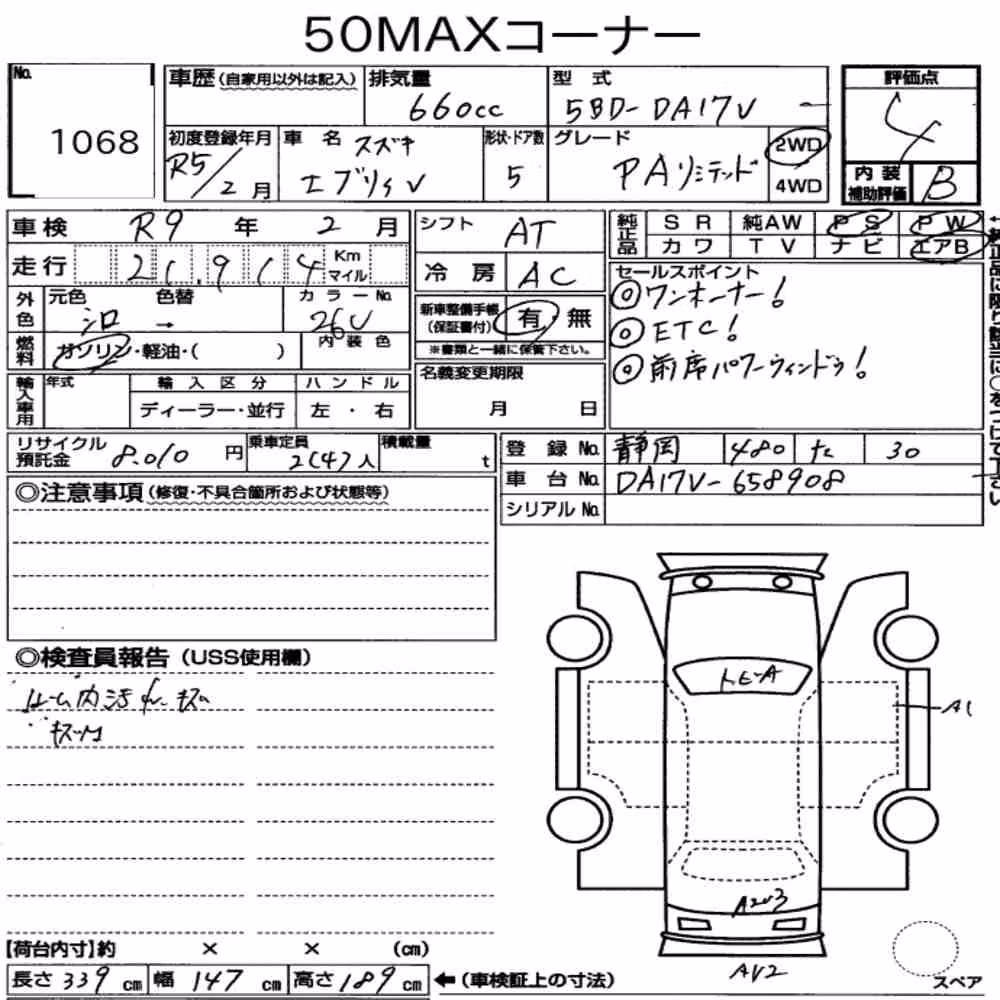 50MAXコーナー
No. 1068
車歴 (自家用以外は記入) 排気量 660cc 型式 5BD-DA17V 評価点 4
初度登録年月 R5/2月 車名 スズキ エブリィV 形状・ドア数 5 グレード PAリミテッド 2WD 4WD 内装補助評価 B
車検 R9年 2月 シフト AT 純正品 SR 純AW PS PW
走行 21,914 Km マイル 冷房 AC カワ TV ナビ エアB
外色 元色 色替 カラーNo. セールスポイント
白 → 26U
新車整備手帳 (保証書付) 有 無
◎ワンオーナー!
◎ETC!
◎前席パワーウィンドゥ!
燃料 ガソリン・軽油・( ) 内装色 ※書類と一緒に保管下さい。
輸入車用 年式 輸入区分 ハンドル 名義変更期限
ディーラー・並行 左・右 月 日
リサイクル預託金 8,010円 乗車定員 2(4)人 積載量 t
登録No. 静岡 480 た 30
車台No. DA17V-658908
シリアルNo.
◎注意事項 (修復・不具合箇所および状態等)
◎検査員報告 (USS使用欄)
トビーA
A1
A2
AU2
【荷台内寸】約 × × (cm)
長さ 339 cm 幅 147 cm 高さ 189 cm ←(車検証上の寸法)
スペア